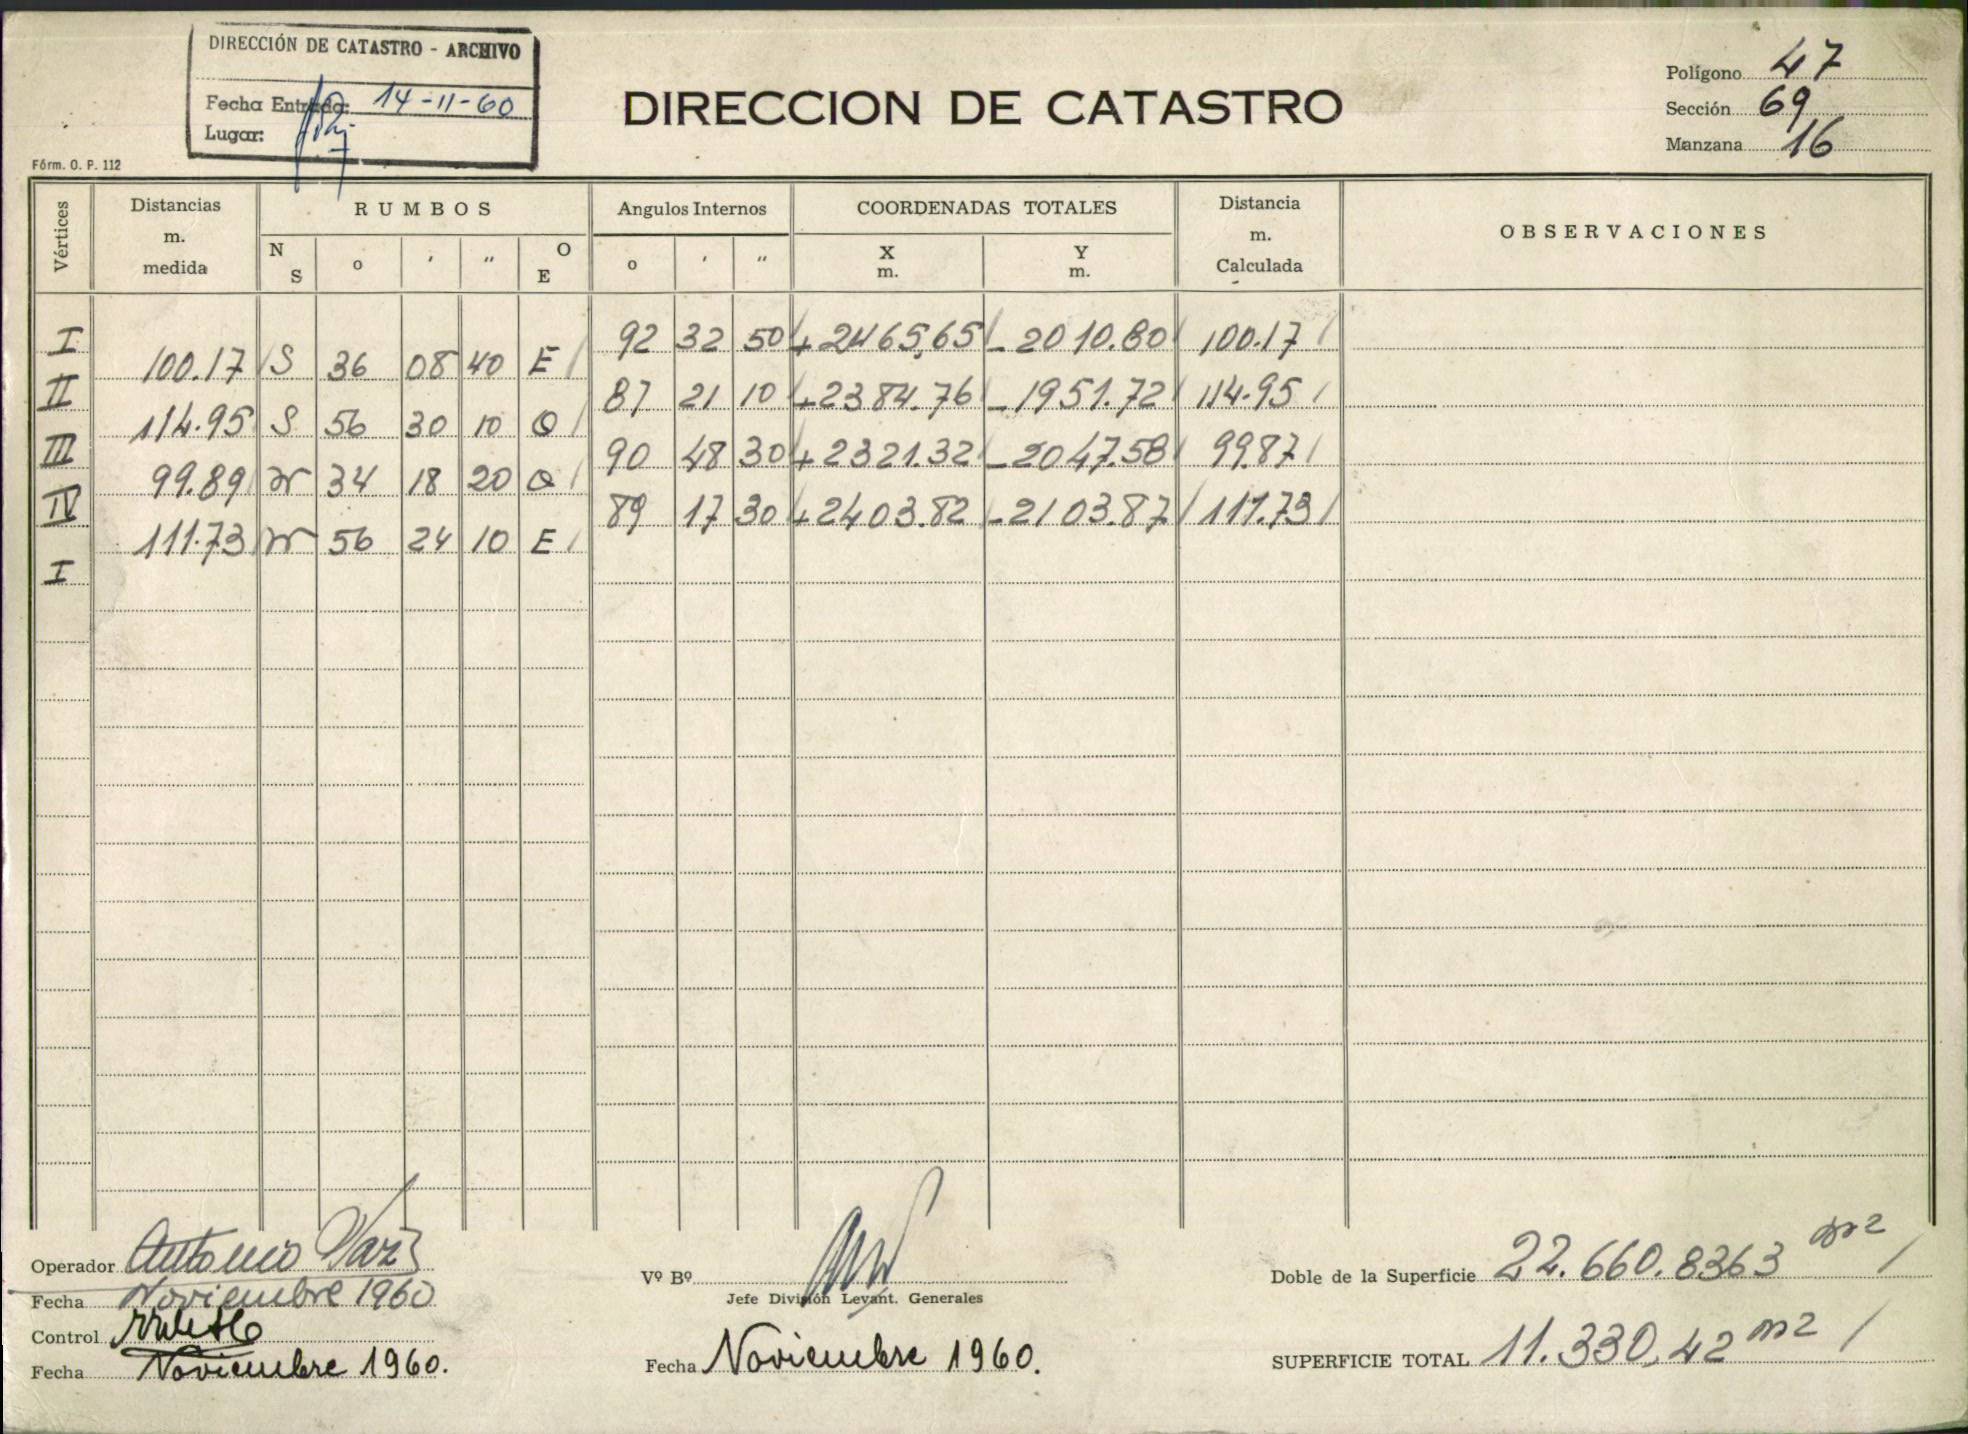 DIRECCIÓN DE CATASTRO - ARCHIVO
Fecha Entrada: 14-11-60
Lugar:
DIRECCION DE CATASTRO
Polígono 47
Sección 69
Manzana 16
Fórm. O. P. 112
Vértices Distancias m. medida RUMBOS Angulos Internos COORDENADAS TOTALES Distancia m. Calculada OBSERVACIONES
N S o ' " O E o ' " X m. Y m.
I 92 32 50 +2465,65 -2010.80 100.17
100.17 S 36 08 40 E
II 87 21 10 +2384.76 -1951.72 114.95
114.95 S 56 30 10 O
III 90 48 30 +2321.32 -2047.58 99.87
99.89 N 34 18 20 O
IV 89 17 30 +2403.82 -2103.87 111.73
111.73 N 56 24 10 E
I
Operador Antonio
Fecha Noviembre 1960
Control
Fecha Noviembre 1960.
Vº Bº
Jefe División Levant. Generales
Fecha Noviembre 1960.
Doble de la Superficie 22.660.8363 m2
SUPERFICIE TOTAL 11.330,42 m2